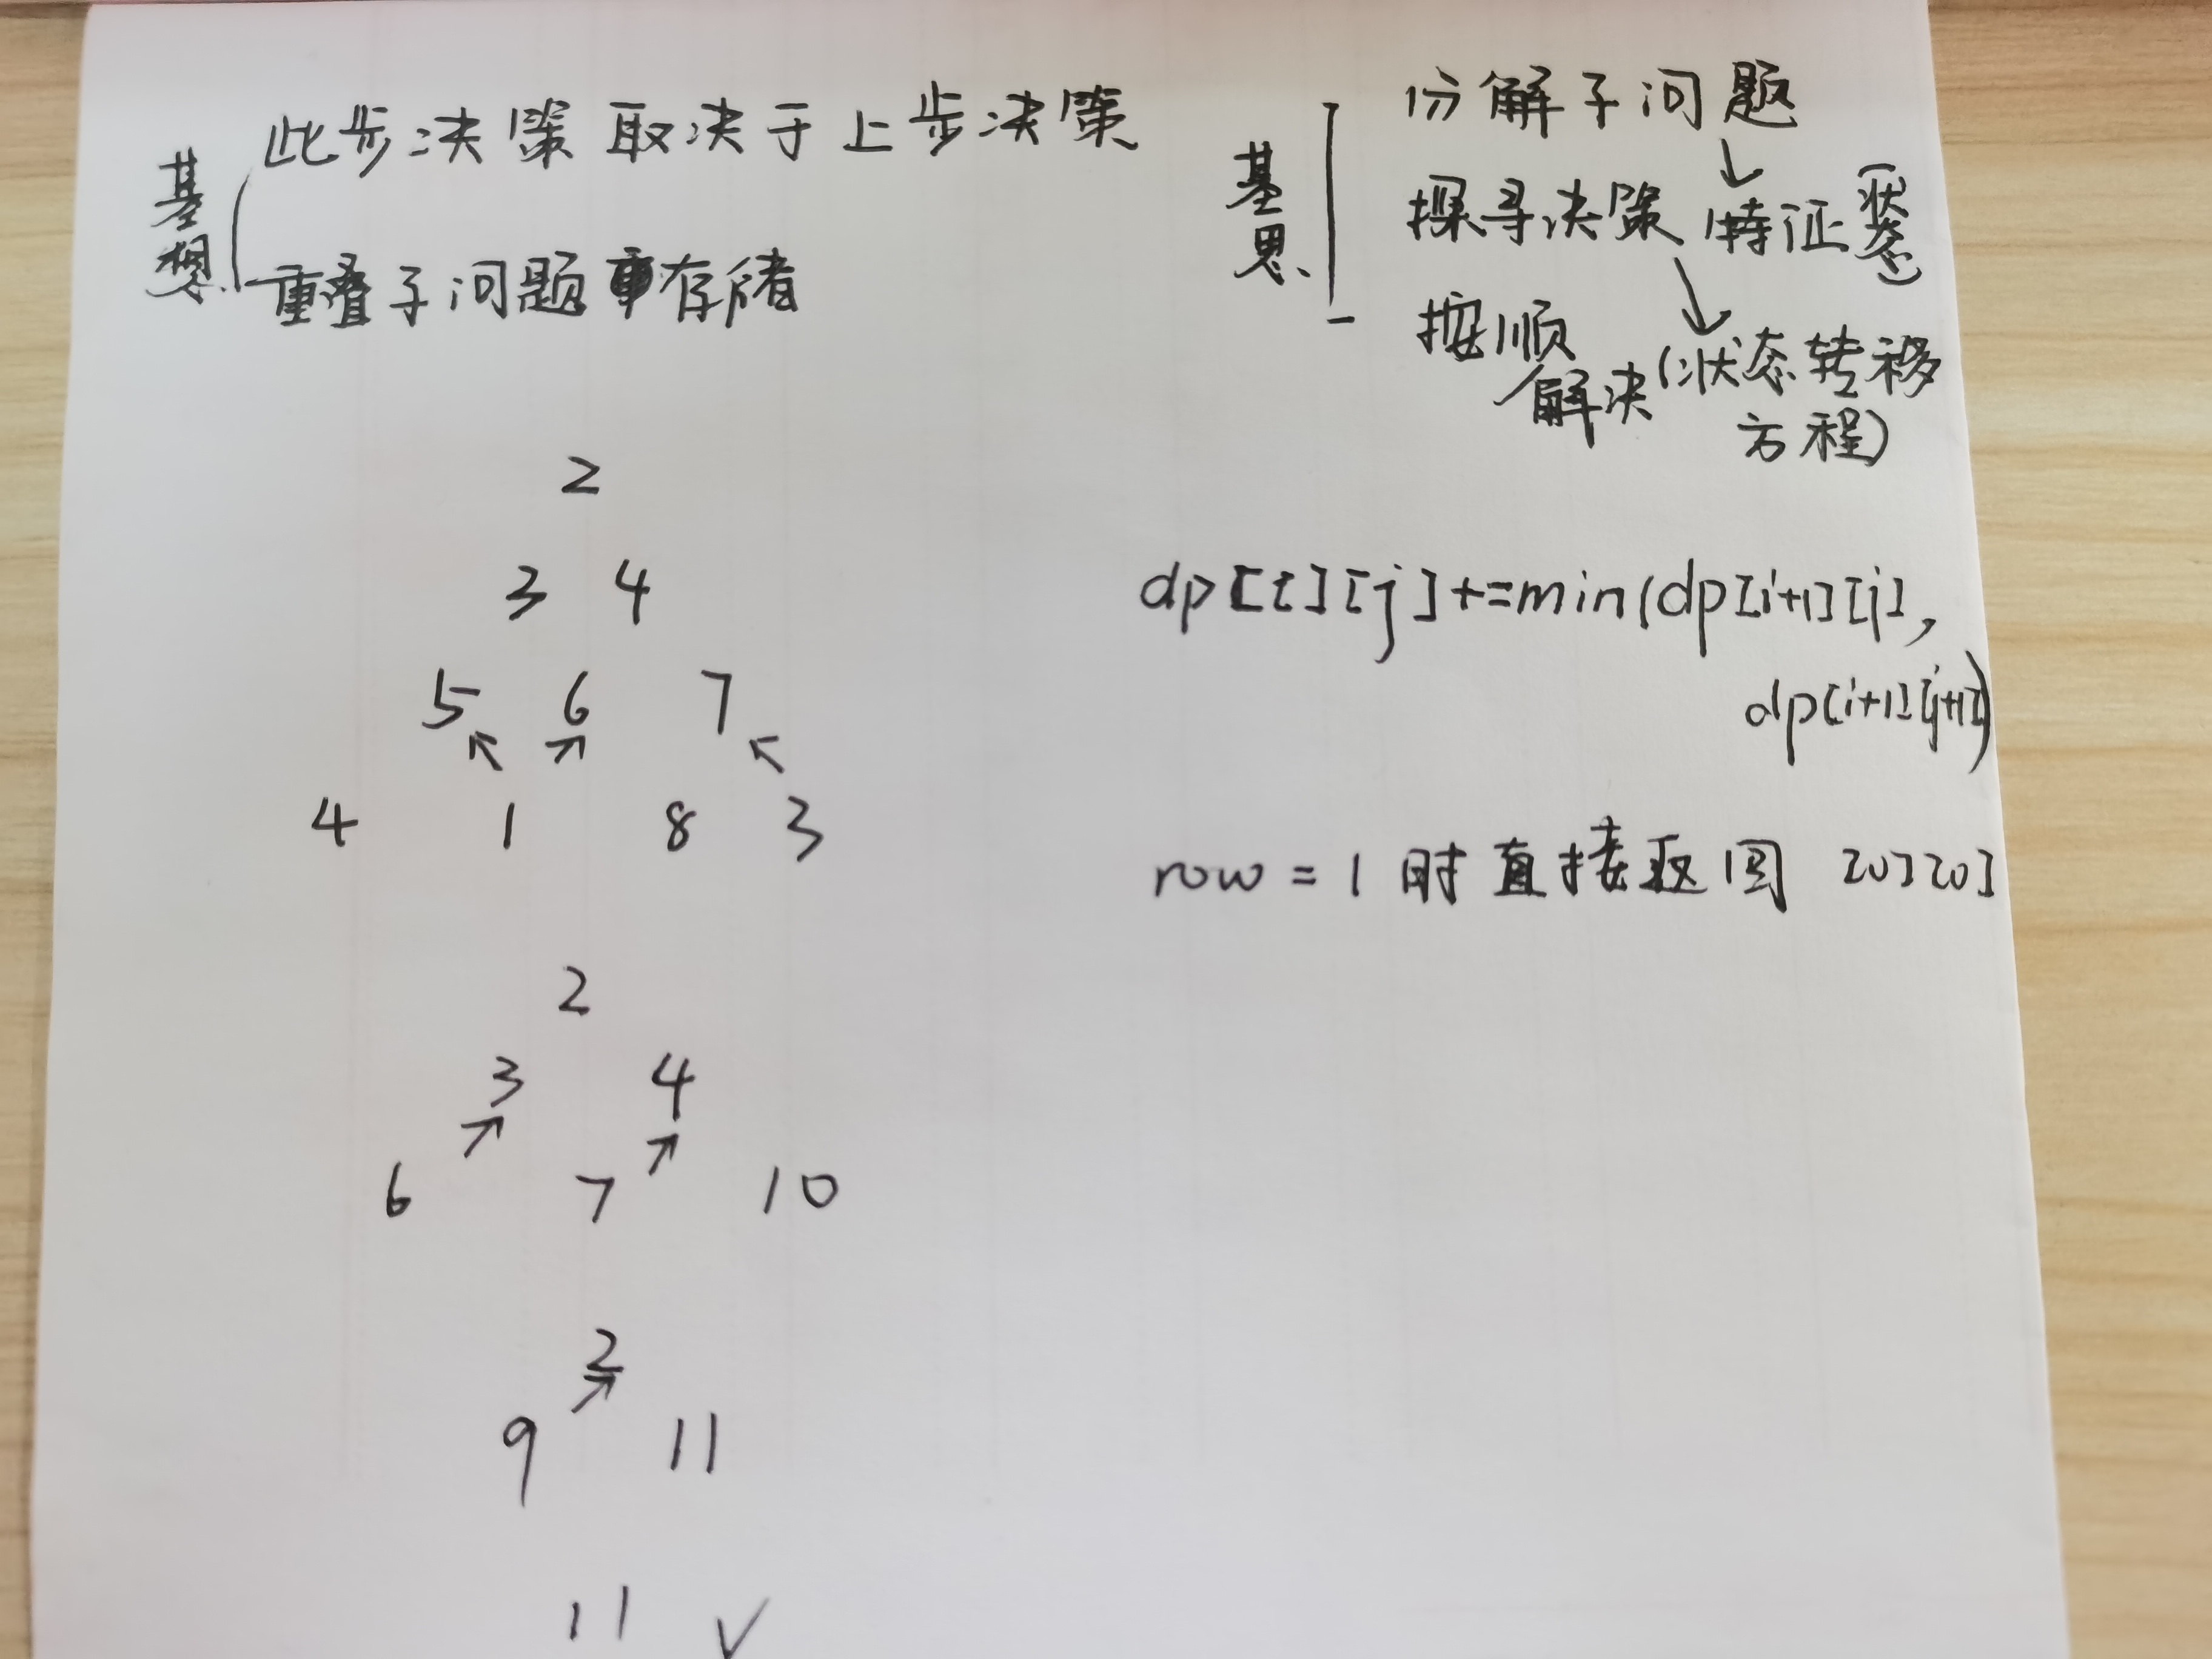 基想
此步决策取决于上步决策
重叠子问题存储
基思、
分解子问题
探寻决策特征(状态)
按顺
解决(状态转移
方程)
2
3 4
5 6 7
4 1 8 3
dp[i][j]+=min(dp[i+1][j],
dp[i+1][j+1])
row=1时直接返回[0][0]
2
3 4
6 7 10
2
9 11
11 ✓